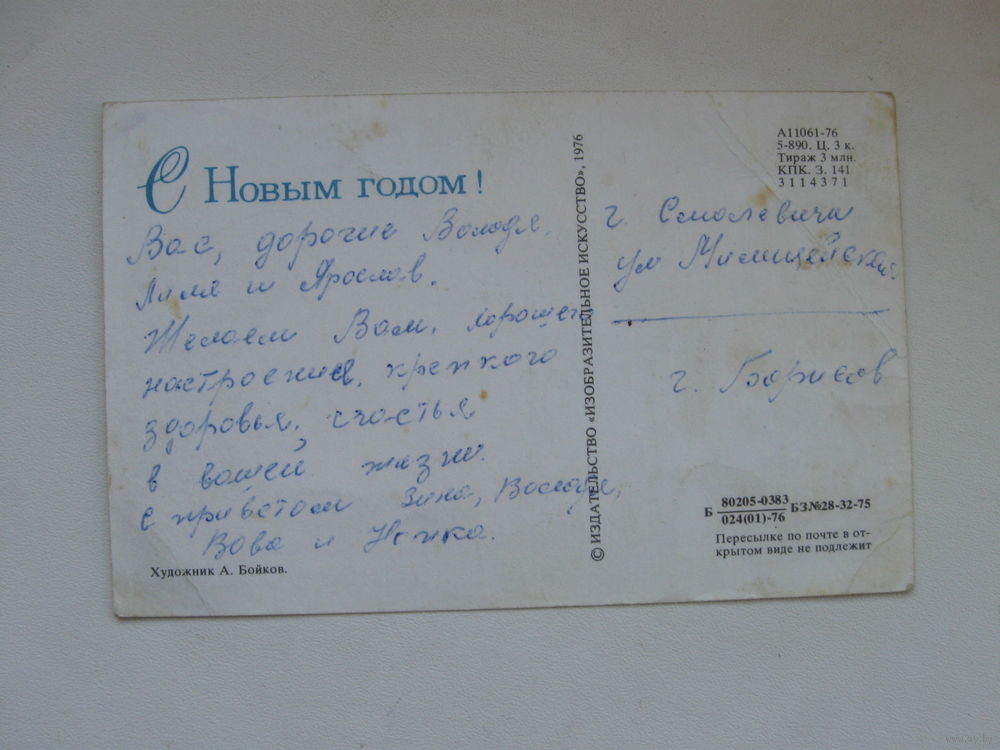 С Новым годом!
Вас, дорогие Володя,
Лиля и Ярослав.
Желаем Вам, хорошего
настроения, крепкого
здоровья, счастья
в вашей жизни.
С приветом Зина, Володя,
Вова и
Художник А. Бойков.
© ИЗДАТЕЛЬСТВО «ИЗОБРАЗИТЕЛЬНОЕ ИСКУССТВО», 1976
А11061-76
5-890. Ц. 3 к.
Тираж 3 млн.
КПК. З. 141
3114371
г. Смолевичи
ул Милицейская
г. Борисов
Б 80205-0383 БЗ№28-32-75
024(01)-76
Пересылке по почте в от-
крытом виде не подлежит